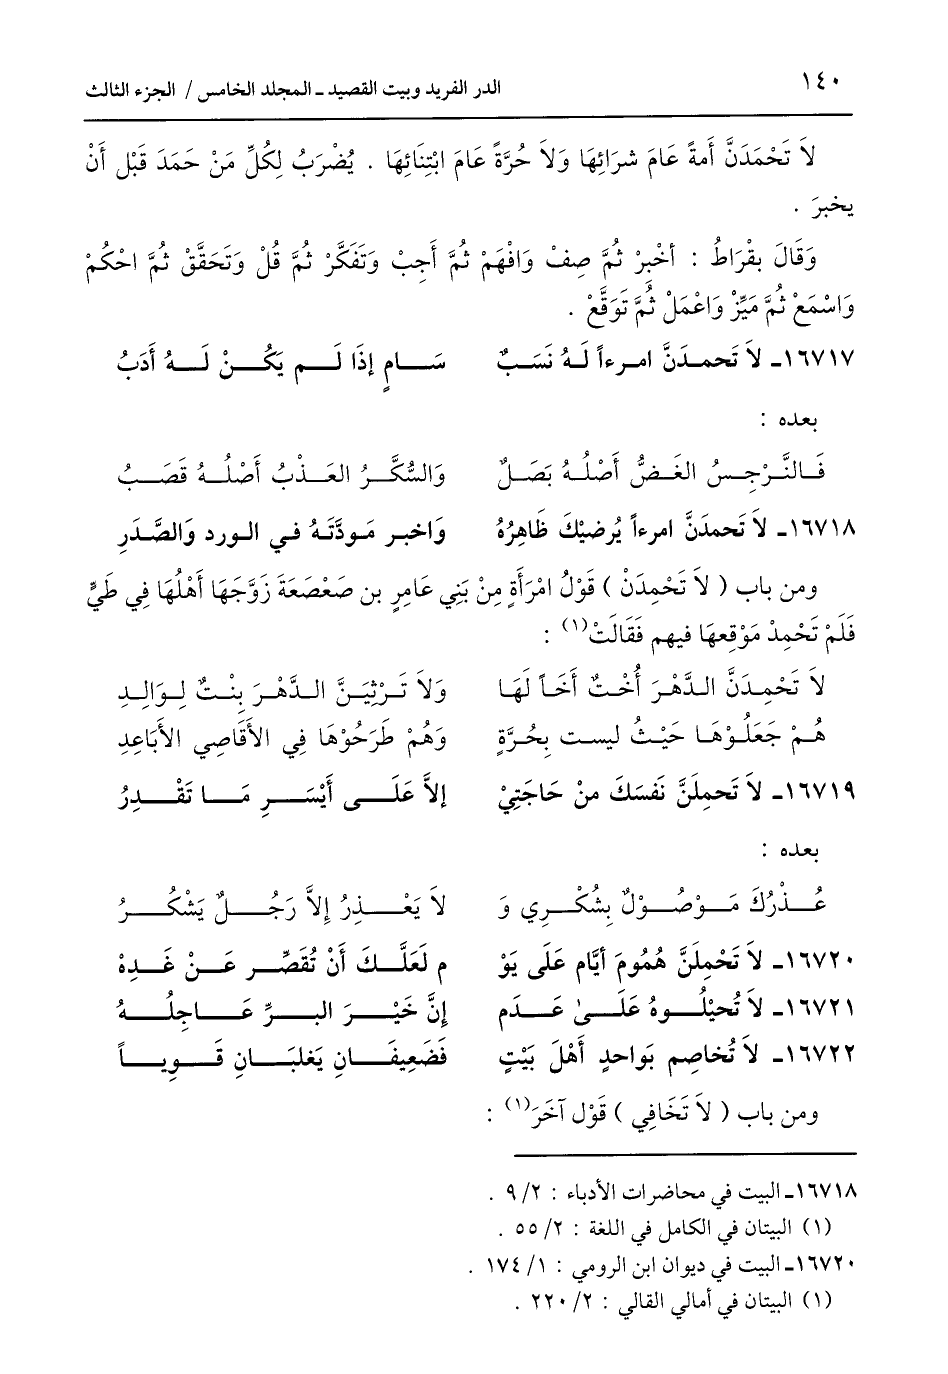 ١٤٠
الدر الفريد وبيت القصيد - المجلد الخامس / الجزء الثالث
لاَ تَحْمَدَنَّ أَمةً عَامَ شرَائِهَا وَلاَ حُرَّةً عَامَ ابْتِنَائِهَا . يُضْرَبُ لِكُلِّ مَنْ حَمَدَ قَبْل أَنْ
يخبرَ .
وَقَالَ بقْرَاطُ : أخْبرْ ثُمَّ صِفْ وَافْهَمْ ثُمَّ أَجِبْ وَتَفَكَّرْ ثُمَّ قُلْ وَتَحَقَّقْ ثُمَّ احْكُمْ
وَاسْمَعْ ثُمَّ مَيِّزْ وَاعْمَلْ ثُمَّ تَوَقَّعْ .
١٦٧١٧- لاَ تَحمدَنَّ امرءاً لَهُ نَسَبٌ سَامٍ إذَا لَم يَكُنْ لَهُ أدَبُ
بعده :
فَالنَّرْجِسُ الغَضُّ أَصْلُهُ بَصَلٌ وَالسُّكَّرُ العَذْبُ أَصْلُهُ قَصَبُ
١٦٧١٨- لاَ تَحمدَنَّ امرءاً يُرضيْكَ ظَاهِرُهُ وَاخبر مَودَّتَهُ في الورد وَالصَّدَرِ
ومن باب ( لاَ تَحْمِدَنْ ) قَوْلُ امْرَأَةٍ مِنْ بَنِي عَامِرٍ بن صَعْصَعَةَ زَوَّجَهَا أَهْلُهَا فِي طَيٍّ
فَلَمْ تَحْمِدْ مَوْقِعهَا فيهم فَقَالَتْ(١) :
لاَ تَحْمِدَنَّ الدَّهْرَ أُخْتٌ أَخَاً لَهَا وَلاَ تَرْثِيَنَّ الدَّهْرَ بِنْتٌ لِوَالِدِ
هُمْ جَعَلُوْهَا حَيْثُ ليست بِحُرَّةٍ وَهُمْ طَرَحُوْهَا فِي الأَقَاصِي الأَبَاعِدِ
١٦٧١٩- لاَ تَحمِلَنَّ نَفسَكَ منْ حَاجَتِيْ إلاَّ عَلَى أَيْسَرِ مَا تَقْدِرُ
بعده :
عُذْرُكَ مَوْصُوْلٌ بِشُكْرِي وَ لاَ يَعْذِرُ إلاَّ رَجُلٌ يَشْكُرُ
١٦٧٢٠- لاَ تَحْمِلَنَّ هُمُومَ أيَّام عَلَى يَوْ م لَعَلَّكَ أَنْ تُقَصِّر عَنْ غَدِهْ
١٦٧٢١- لاَ تُحيْلُوهُ عَلَىٰ عَدَم إنَّ خَيْرَ البرِّ عَاجِلُهُ
١٦٧٢٢- لاَ تُخاصِم بَواحدٍ أَهْلَ بَيْتٍ فَضَعِيفَانِ يَغلبَانِ قَوِياً
ومن باب ( لاَ تَخَافِي ) قَوْل آخَرَ(١) :
١٦٧١٨- البيت في محاضرات الأدباء : ٢/ ٩ .
(١) البيتان في الكامل في اللغة : ٢/ ٥٥ .
١٦٧٢٠- البيت في ديوان ابن الرومي : ١/ ١٧٤ .
(١) البيتان في أمالي القالي : ٢/ ٢٢٠ .